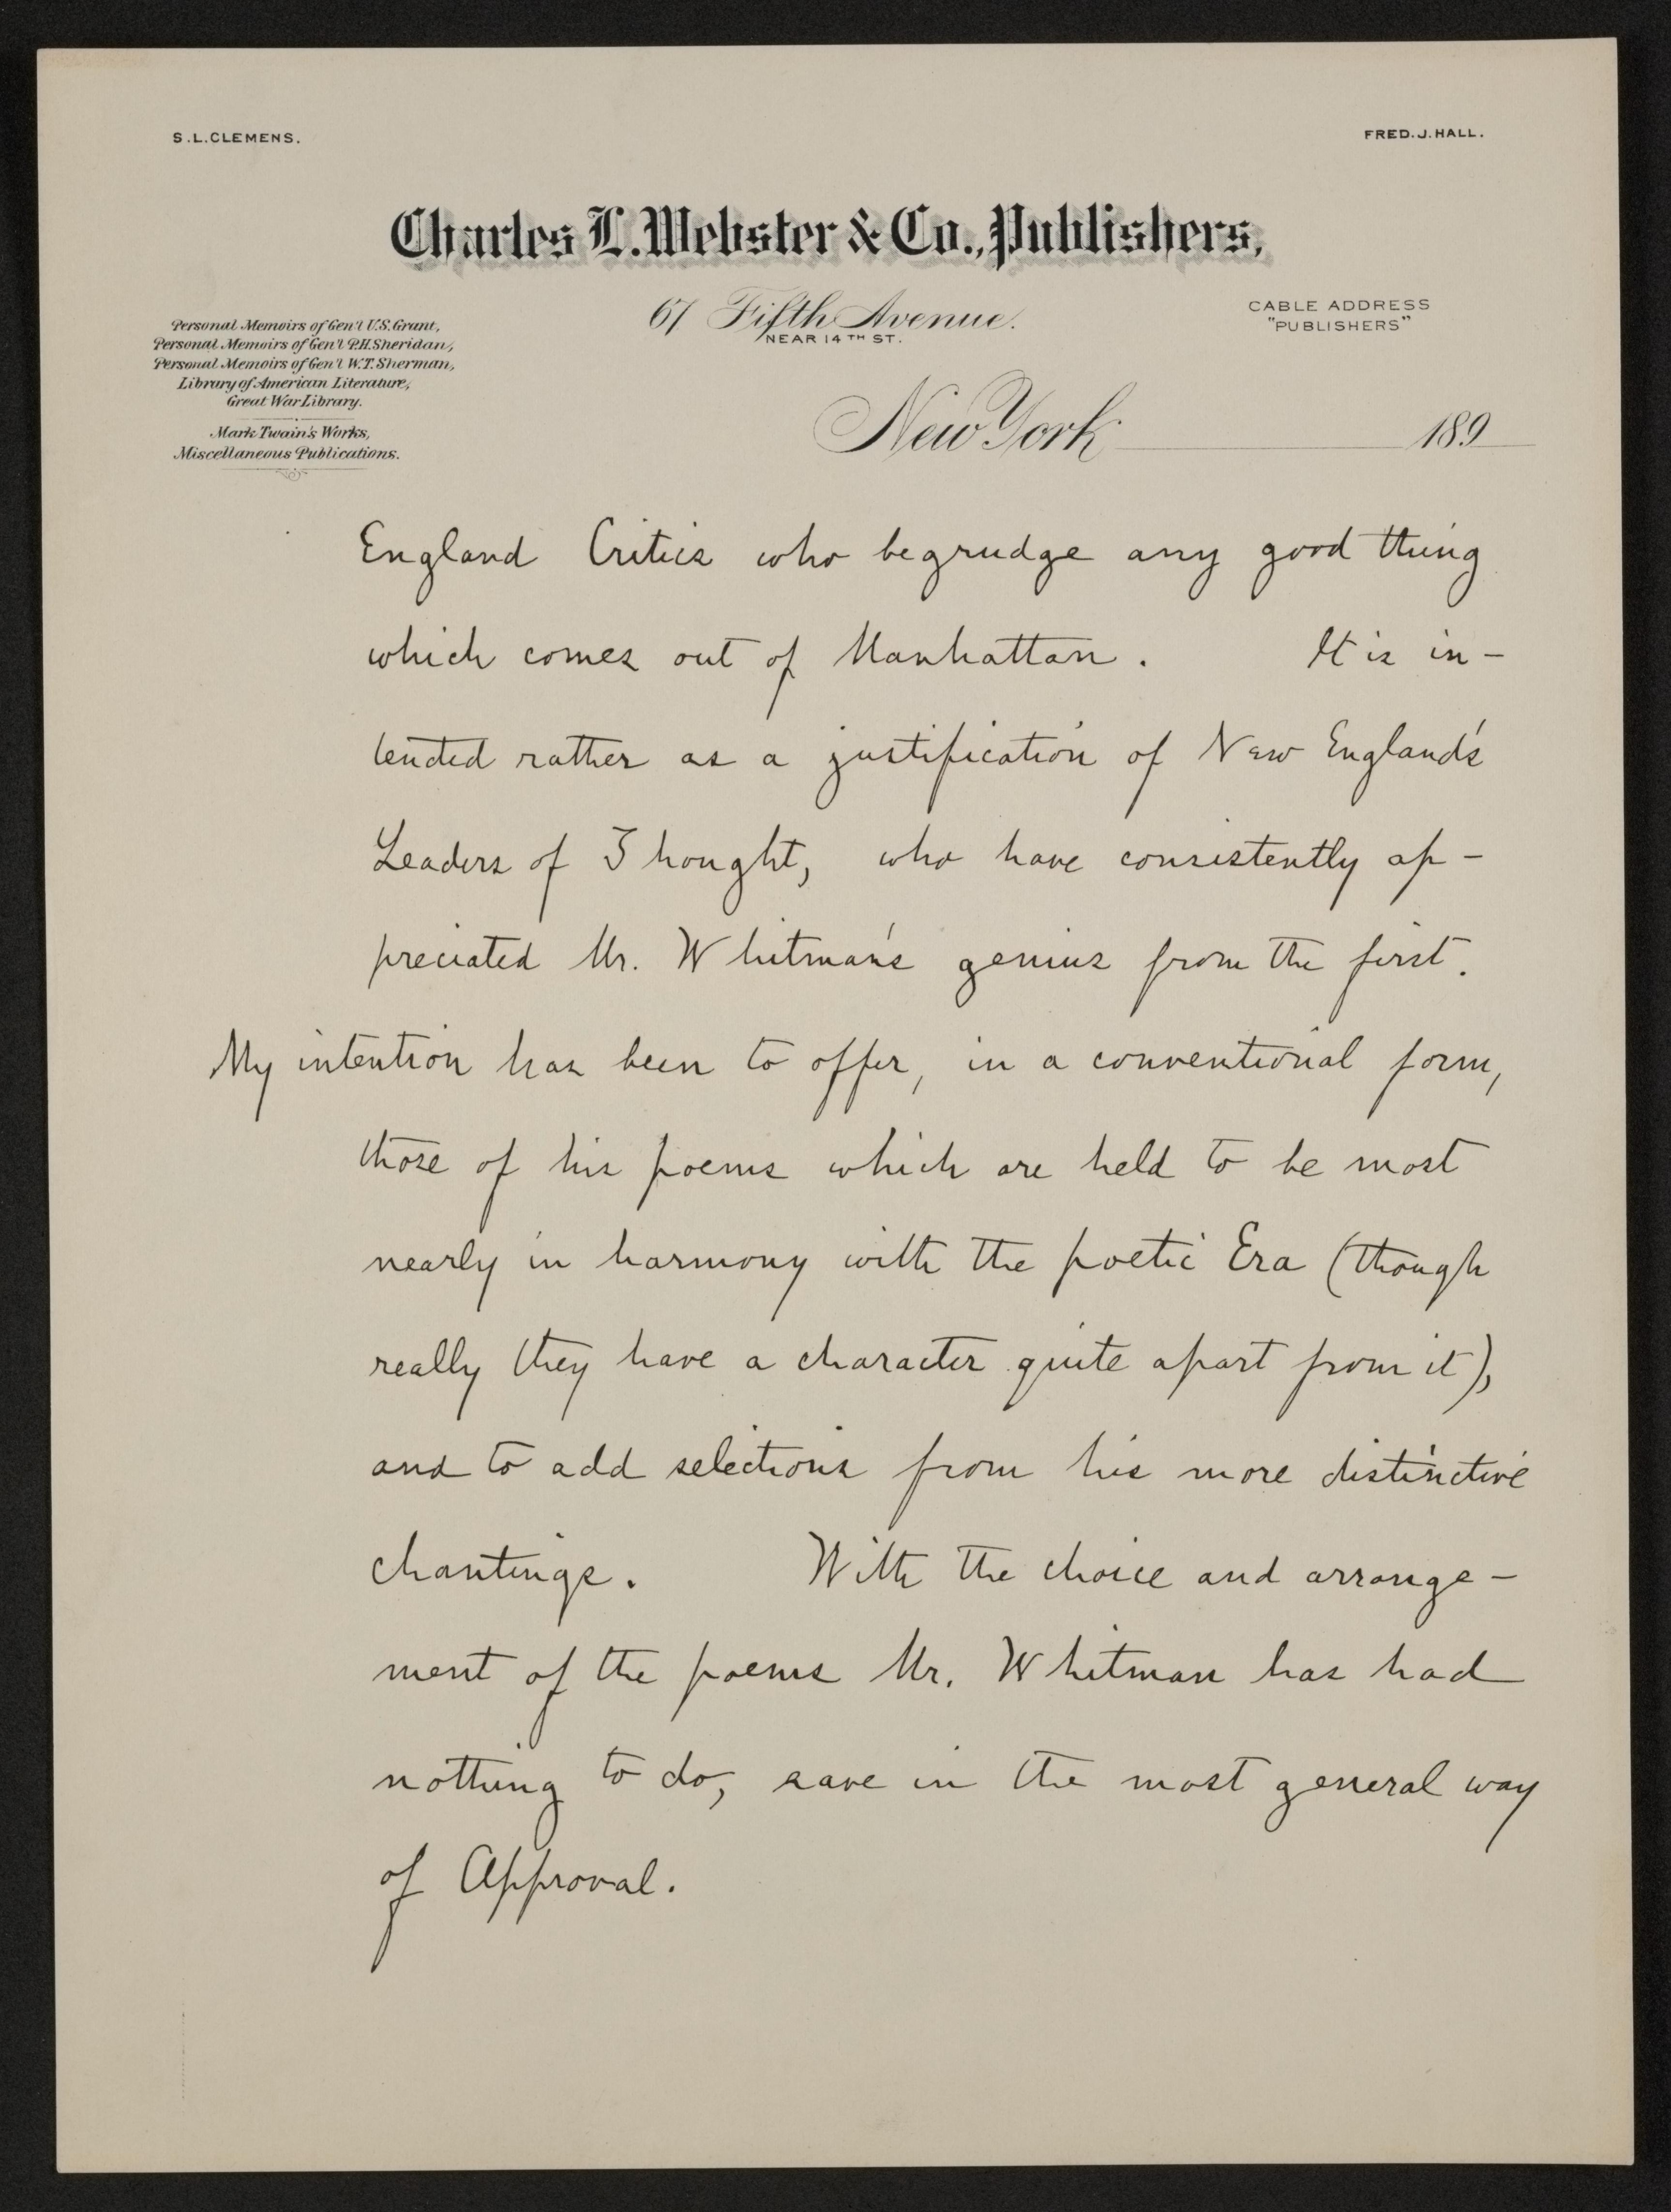 S.L.CLEMENS.
FRED.J.HALL.
Charles L. Webster & Co., Publishers,
67 Fifth Avenue.
NEAR 14TH ST.
CABLE ADDRESS
"PUBLISHERS"
Personal Memoirs of Gen'l U.S. Grant,
Personal Memoirs of Gen'l P.H. Sheridan,
Personal Memoirs of Gen'l W.T. Sherman,
Library of American Literature,
Great War Library.
Mark Twain's Works,
Miscellaneous Publications.
New York 189
England Critics who begrudge any good thing
which comes out of Manhattan. It is in-
tended rather as a justification of New England's
Leaders of Thought, who have consistently ap-
preciated Mr. Whitman's genius from the first.
My intention has been to offer, in a conventional form,
those of his poems which are held to be most
nearly in harmony with the poetic Era (though
really they have a character quite apart from it),
and to add selections from his more distinctive
chantings. With the choice and arrange-
ment of the poems Mr. Whitman has had
nothing to do, save in the most general way
of Approval.